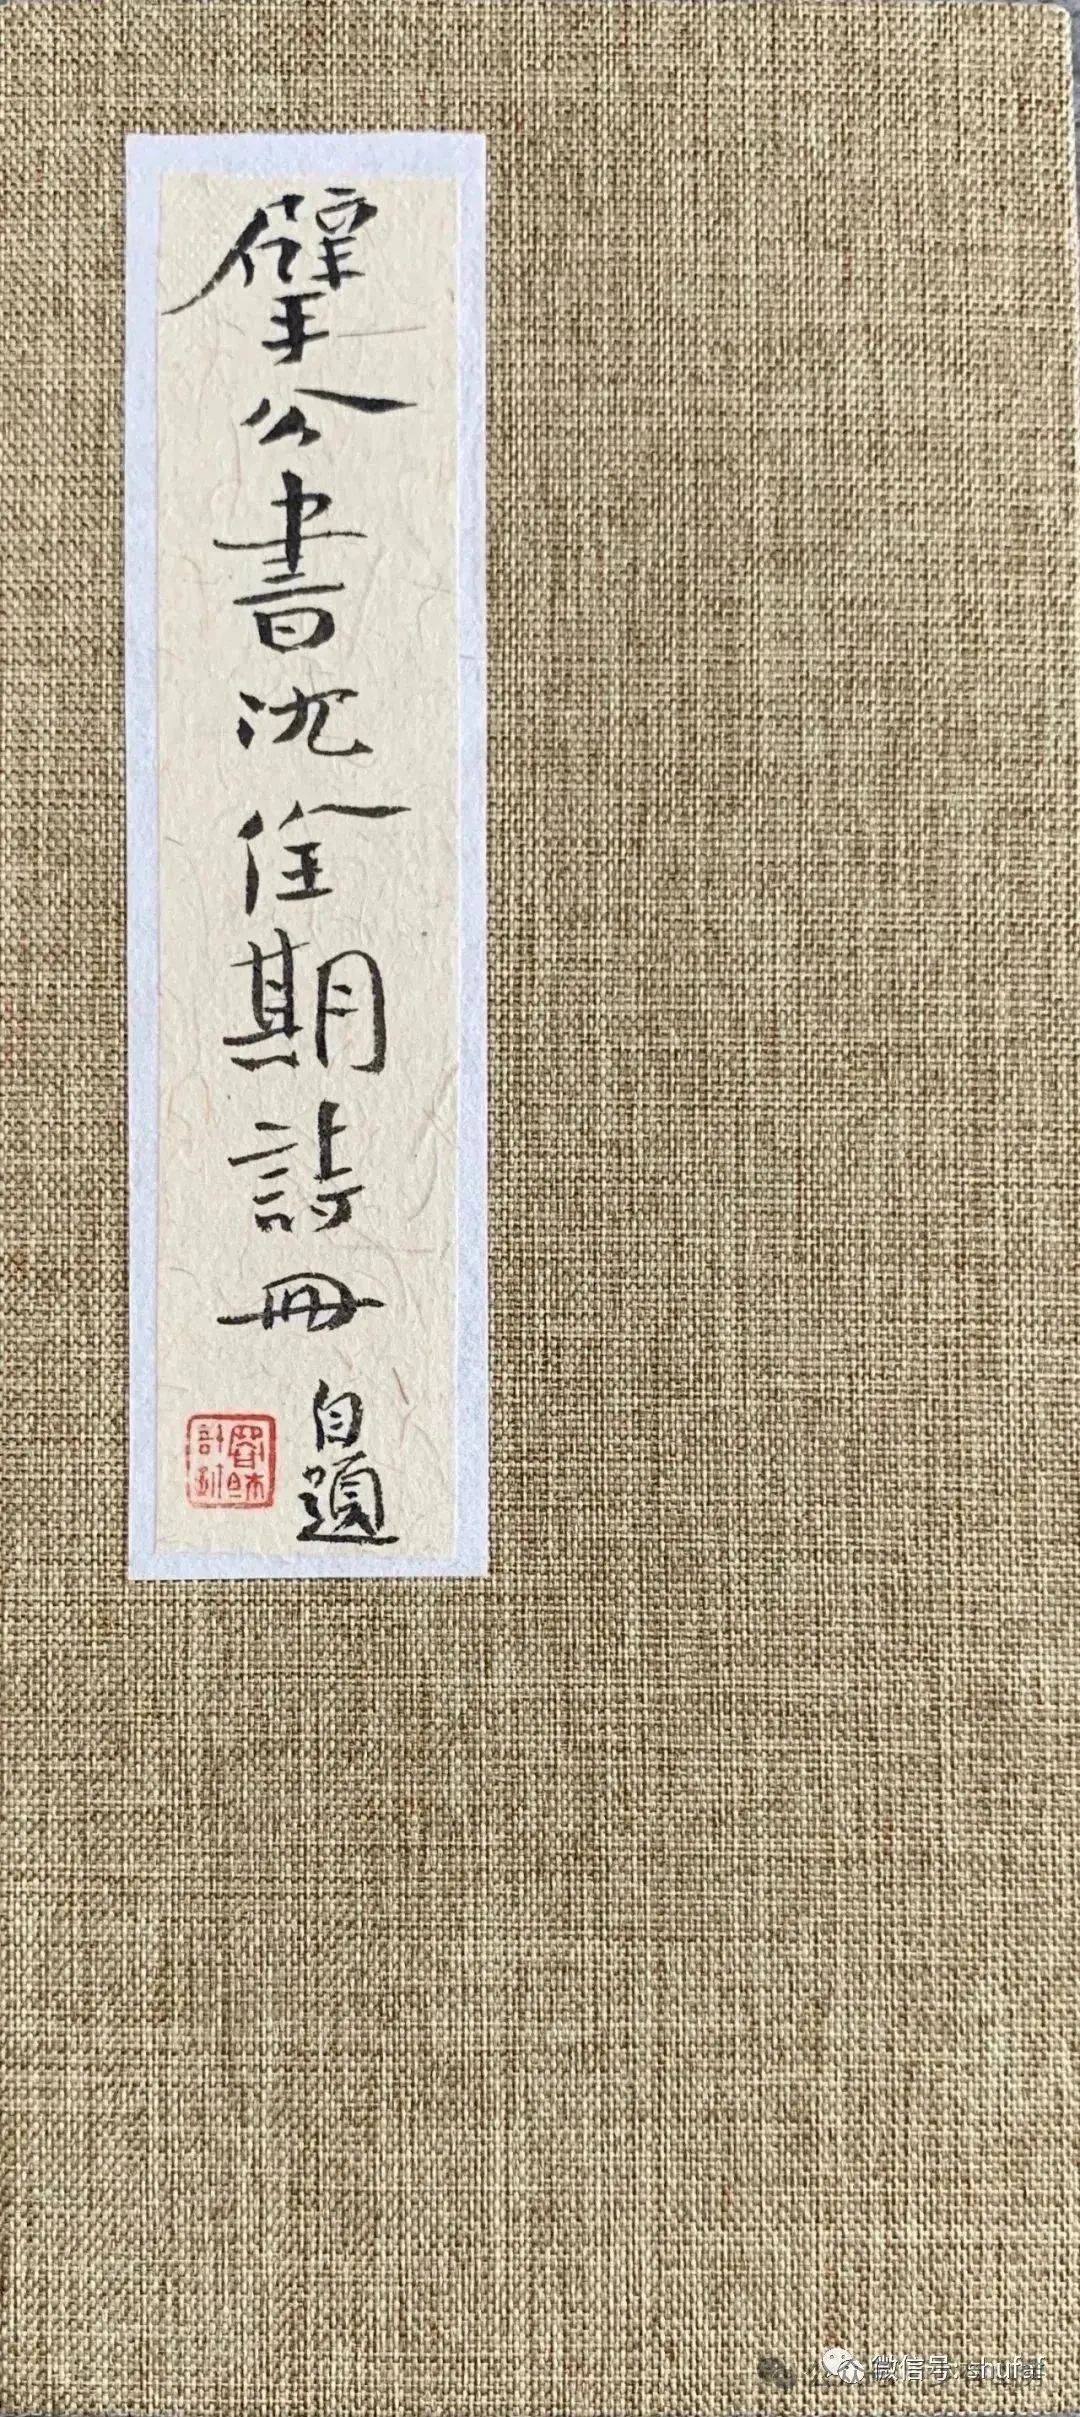 擘公書沈佺期詩冊
自題
微信号: shufaf